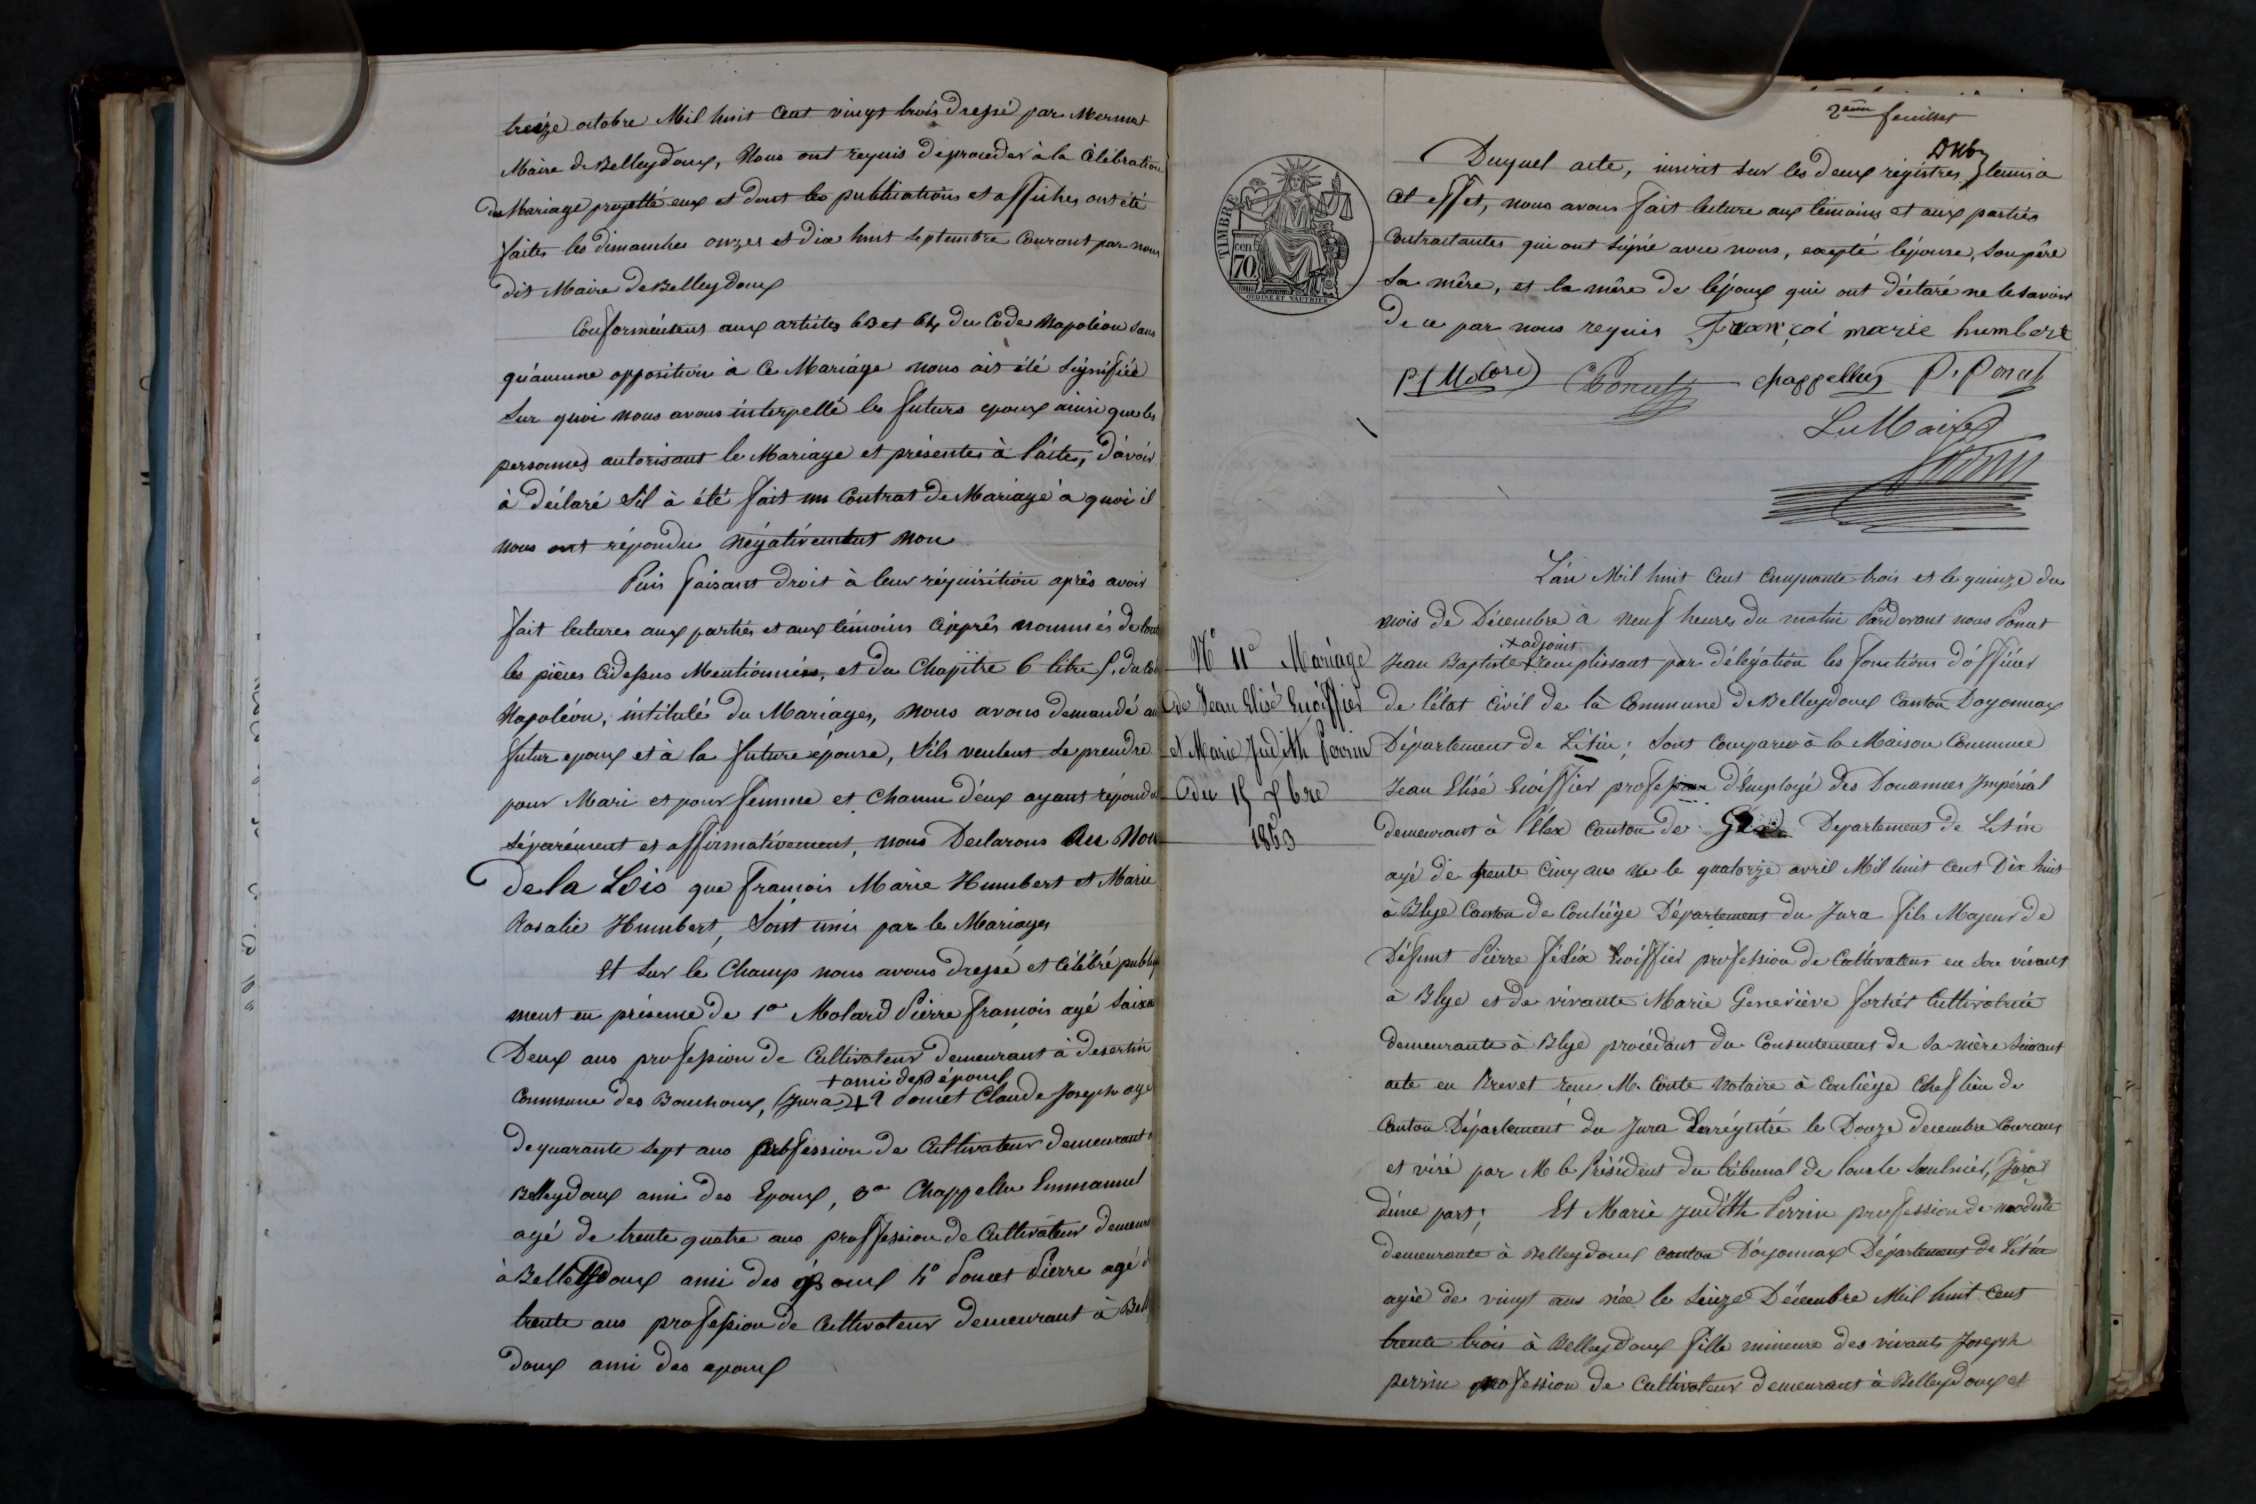 treize octobre Mil huit Cent vingt trois dressé par Mermet
Maire de Belleydoux, Nous ont requis de proceder à la Célébration
du Mariage projetté eux et dont les publications et affiches ont été
faites les dimanches onzes et dix huit septembre Courant par nous
dit Maire de Belleydoux
Conformément aux articles 63 et 64 du Code Napoléon sans
qu'aucune opposition à Ce Mariage nous ait été signifiée
Sur quoi nous avons interpellé les futurs epoux ainsi que les
personnes autorisant le Mariage et présentes à l'acte, d'avoir
à déclaré s'il à été fait un Contrat de Mariage à quoi il
nous ont répondu Négativement non
Puis faisant droit à leur réquisition après avoir
fait lectures aux parties et aux témoins Ciaprès nommés de tout
les pièces Cidessus Mentionnées, et du Chapitre 6 titre 5. du Code
Napoléon, intitulé du Mariages, nous avons demandé au
futur epoux et à la future épouse, s'ils veulent se prendre
pour Mari et pour femme et Chacun d'eux ayant répondu
séparément et affirmativement, nous Declarons Au Nom
de la Lois que François Marie Humbert et Marie
Rosalie Humbert, Sont unis par le Mariages
Et Sur le Champ nous avons dressé et Célébré publiq
ment en présence de 1° Molard Pierre françois agé Soixan
Deux ans profession de Cultivateur demeurant à desertin
+ ami des époux
Commune des Bouchoux, (Jura) + 2 Poncet Claude Joseph agé
de quarante sept ans profession de Cultivateur demeurant
Belleydoux ami des Epoux, 3° Chappellu Emmanuel
agé de trente quatre ans proffession de Cultivateur demeur
à Belleydoux ami des époux 4° Poncet Pierre agé d
trente ans profession de Cultivateur demeurant à Belley
doux ami des epoux
2ème feuillet
Duquel acte, inscrit sur les deux régistres tenus à
Cet effet, nous avons fait lecture aux témoins et aux parties
Contractantes qui ont signé avec nous, excepté l'épouse, son père
Sa mère, et la mère de l'époux qui ont déclaré ne le savoir
de ce par nous requis Françoi marie humbert
Pf Molard C Poncet chappelluz P. Poncet
Le Maire
TIMBRE
70
cen
N° 11e Mariage
de Jean Elisé Ecoiffier
et Marie Judith Perrin
du 15 xbre
1853
L'an Mil huit Cent Cinquante trois et le quinze du
mois de Décembre à neuf heures du matin Pardevant nous Poncet
+ adjoint
Jean Baptiste + remplissant par délégation les fonctions d'officier
de l'état Civil de la Commune de Belleydoux Canton Doyonnax
Département de L'Ain; Sont Comparus à la Maison Commune
Jean Elisé Ecoiffier profession d'Employé des Douannes Impérial
demeurant à Canton de Gex Departement de L'Ain
agé de trente Cinq ans Né le quatorze avril Mil huit Cent Dix huit
à Blye Canton de Conliège Département du Jura fils Majeur de
Défunt Pierre Félix Ecoiffier profession de Cultivateur en son vivant
à Blye et de vivante Marie Geneviève Cultivatrice
demeurante à Blye procédant du Consentement de sa mère suivant
acte en Brevet reçu M. Conte Notaire à Conliège Chef lieu de
Canton Département du Jura Enrégistré le Douze decembre Courant
et visé par M le Président du tribunal de Lons le Saulnier, Jura
d'une part; Et Marie Judith Perrin profession de modiste
demeurante à Belleydoux canton D'oyonnax Département de L'Ain
agée de vingt ans née le Seize Décembre Mil huit Cent
trente trois à Belleydoux fille mineure des vivants Joseph
perrin profession de Cultivateur demeurant à Belleydoux et